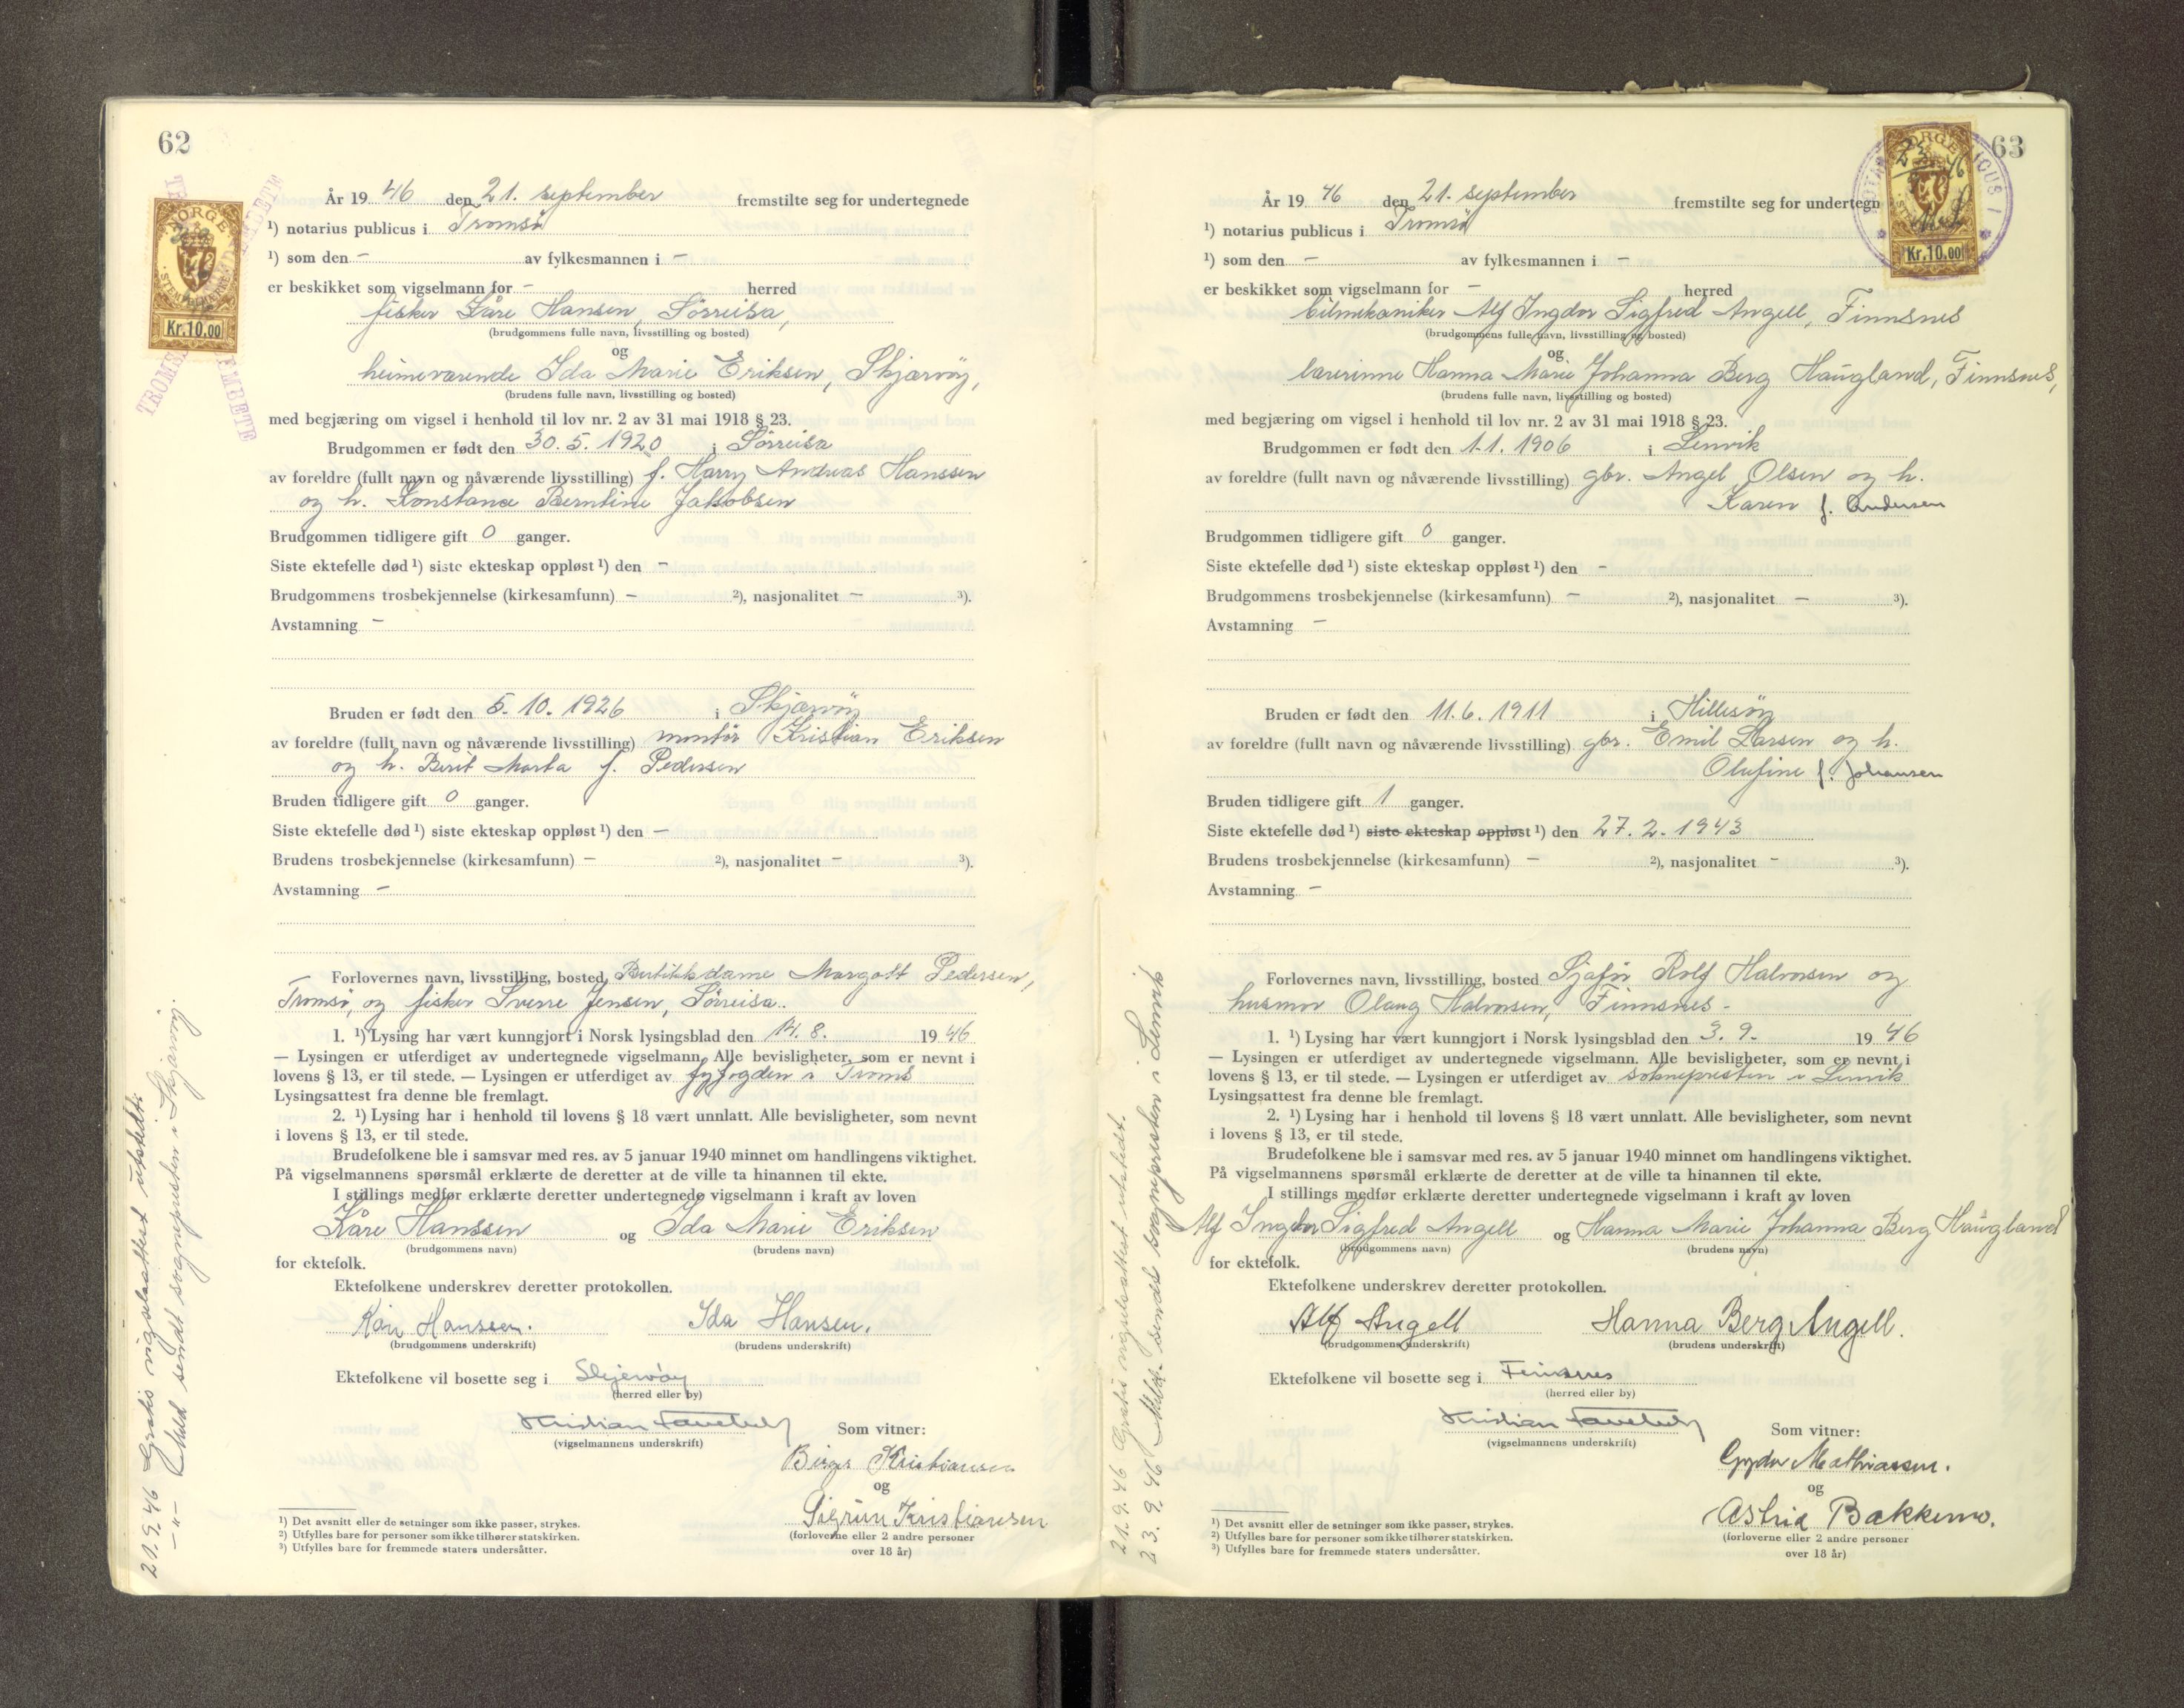 62
År 19 46 den 21. september fremstilte seg for undertegnede
¹) notarius publicus i Tromsö
¹) som den – av fylkesmannen i –
er beskikket som vigselmann for – herred
fisker Kåre Hansen, Sörreisa,
(brudgommens fulle navn, livsstilling og bosted)
og
heimeværende Ida Marie Eriksen, Skjærvöy,
(brudens fulle navn, livsstilling og bosted)
med begjæring om vigsel i henhold til lov nr. 2 av 31 mai 1918 § 23.
Brudgommen er født den 30. 5. 1920 i Sörreisa
av foreldre (fullt navn og nåværende livsstilling) f. Harry Andreas Hanssen
og h. Konstance Berntine Jakobsen
Brudgommen tidligere gift 0 ganger.
Siste ektefelle død ¹) siste ekteskap oppløst ¹) den –
Brudgommens trosbekjennelse (kirkesamfunn) – ²), nasjonalitet – ³).
Avstamning –
Bruden er født den 5. 10. 1926 i Skjærvöy
av foreldre (fullt navn og nåværende livsstilling) montör Kristian Eriksen
og h. Berit Marta f. Pedersen
Bruden tidligere gift 0 ganger.
Siste ektefelle død ¹) siste ekteskap oppløst ¹) den –
Brudens trosbekjennelse (kirkesamfunn) – ²), nasjonalitet – ³).
Avstamning –
Forlovernes navn, livsstilling, bosted Butikkdame Margott Pedersen,
Tromsö, og fisker Sverre Jensen, Sörreisa.
1. ¹) Lysing har vært kunngjort i Norsk lysingsblad den 14. 8. 19 46
— Lysingen er utferdiget av undertegnede vigselmann. Alle bevisligheter, som er nevnt i
lovens § 13, er til stede. — Lysingen er utferdiget av byfogden i Troms
Lysingsattest fra denne ble fremlagt.
2. ¹) Lysing har i henhold til lovens § 18 vært unnlatt. Alle bevisligheter, som nevnt
i lovens § 13, er til stede.
Brudefolkene ble i samsvar med res. av 5 januar 1940 minnet om handlingens viktighet.
På vigselmannens spørsmål erklærte de deretter at de ville ta hinannen til ekte.
I stillings medfør erklærte deretter undertegnede vigselmann i kraft av loven
Kåre Hanssen og Ida Marie Eriksen
(brudgommens navn) (brudens navn)
for ektefolk.
Ektefolkene underskrev deretter protokollen.
Kåre Hanssen. Ida Hansen.
(brudgommens underskrift) (brudens underskrift)
Ektefolkene vil bosette seg i Skjervöy
(herred eller by)
Kristian
(vigselmannens underskrift)
Som vitner:
Birger Kristiansen
og
Sigrun Kristiansen
(forloverne eller 2 andre personer
over 18 år)
¹) Det avsnitt eller de setninger som ikke passer, strykes.
²) Utfylles bare for personer som ikke tilhører statskirken.
³) Utfylles bare for fremmede staters undersåtter.
21.9.46 Gratis vigselsattest utstedt.
— " — Meld. sendt sognepresten i Skjærvöy.
NORGE
STEMPELMERKE
Kr. 10.00
63
År 19 46 den 21. september fremstilte seg for undertegn
¹) notarius publicus i Tromsö
¹) som den – av fylkesmannen i –
er beskikket som vigselmann for – herred
bilmekaniker Alf Ingdor Sigfred Angell, Finnsnes
(brudgommens fulle navn, livsstilling og bosted)
og
lærerinne Hanna Marie Johanna Berg Haugland, Finnsnes,
(brudens fulle navn, livsstilling og bosted)
med begjæring om vigsel i henhold til lov nr. 2 av 31 mai 1918 § 23.
Brudgommen er født den 1.1. 1906 i Lenvik
av foreldre (fullt navn og nåværende livsstilling) gbr. Angel Olsen og h.
Karen f. Andersen
Brudgommen tidligere gift 0 ganger.
Siste ektefelle død ¹) siste ekteskap oppløst ¹) den –
Brudgommens trosbekjennelse (kirkesamfunn) – ²), nasjonalitet – ³).
Avstamning –
Bruden er født den 11.6. 1911 i Hillesöy
av foreldre (fullt navn og nåværende livsstilling) gbr. Emil Larsen og h.
Olufine f. Johansen
Bruden tidligere gift 1 ganger.
Siste ektefelle død ¹) siste ekteskap oppløst ¹) den 27. 2. 1943
Brudens trosbekjennelse (kirkesamfunn) – ²), nasjonalitet – ³).
Avstamning –
Forlovernes navn, livsstilling, bosted Sjåför Rolf Halvorsen og
husmor Olaug Halvorsen, Finnsnes –
1. ¹) Lysing har vært kunngjort i Norsk lysingsblad den 3. 9. 19 46
— Lysingen er utferdiget av undertegnede vigselmann. Alle bevisligheter, som er nevnt i
lovens § 13, er til stede. — Lysingen er utferdiget av soknepresten i Lenvik
Lysingsattest fra denne ble fremlagt.
2. ¹) Lysing har i henhold til lovens § 18 vært unnlatt. Alle bevisligheter, som nevnt
i lovens § 13, er til stede.
Brudefolkene ble i samsvar med res. av 5 januar 1940 minnet om handlingens viktighet.
På vigselmannens spørsmål erklærte de deretter at de ville ta hinannen til ekte.
I stillings medfør erklærte deretter undertegnede vigselmann i kraft av loven
Alf Ingdor Sigfred Angell og Hanna Marie Johanna Berg Haugland
(brudgommens navn) (brudens navn)
for ektefolk.
Ektefolkene underskrev deretter protokollen.
Alf Angell Hanna Berg Angell.
(brudgommens underskrift) (brudens underskrift)
Ektefolkene vil bosette seg i Finnsnes
(herred eller by)
Kristian
(vigselmannens underskrift)
Som vitner:
Mathiassen.
og
Astrid Bakkemo.
(forloverne eller 2 andre personer
over 18 år)
¹) Det avsnitt eller de setninger som ikke passer, strykes.
²) Utfylles bare for personer som ikke tilhører statskirken.
³) Utfylles bare for fremmede staters undersåtter.
21.9.46 Gratis vigselsattest utstedt.
23.9.46 Meld. sendt sognepresten i Lenvik
NORGE
Kr. 10.00